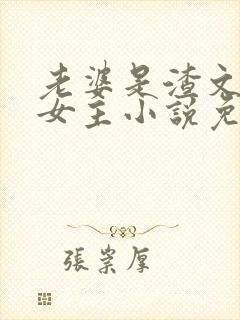 老婆是渣文
女主小説免
張崇厚